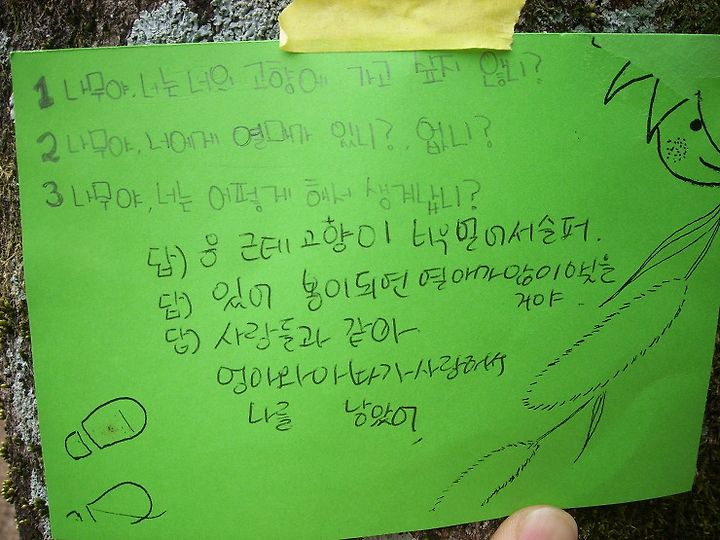 1 나무야, 너는 너의 고향에 가고 싶지 않니?
2 나무야, 너에게 열매가 있니? 없니?
3 나무야, 너는 어떻게 해서 생겨났니?
답) 응 근데 고향이 너무 멀어서 슬퍼.
답) 있어 봄이되면 열매가 많이있을
거야.
답) 사람들과 같아
엄마와 아빠가 사랑해서
나를 낳았어.